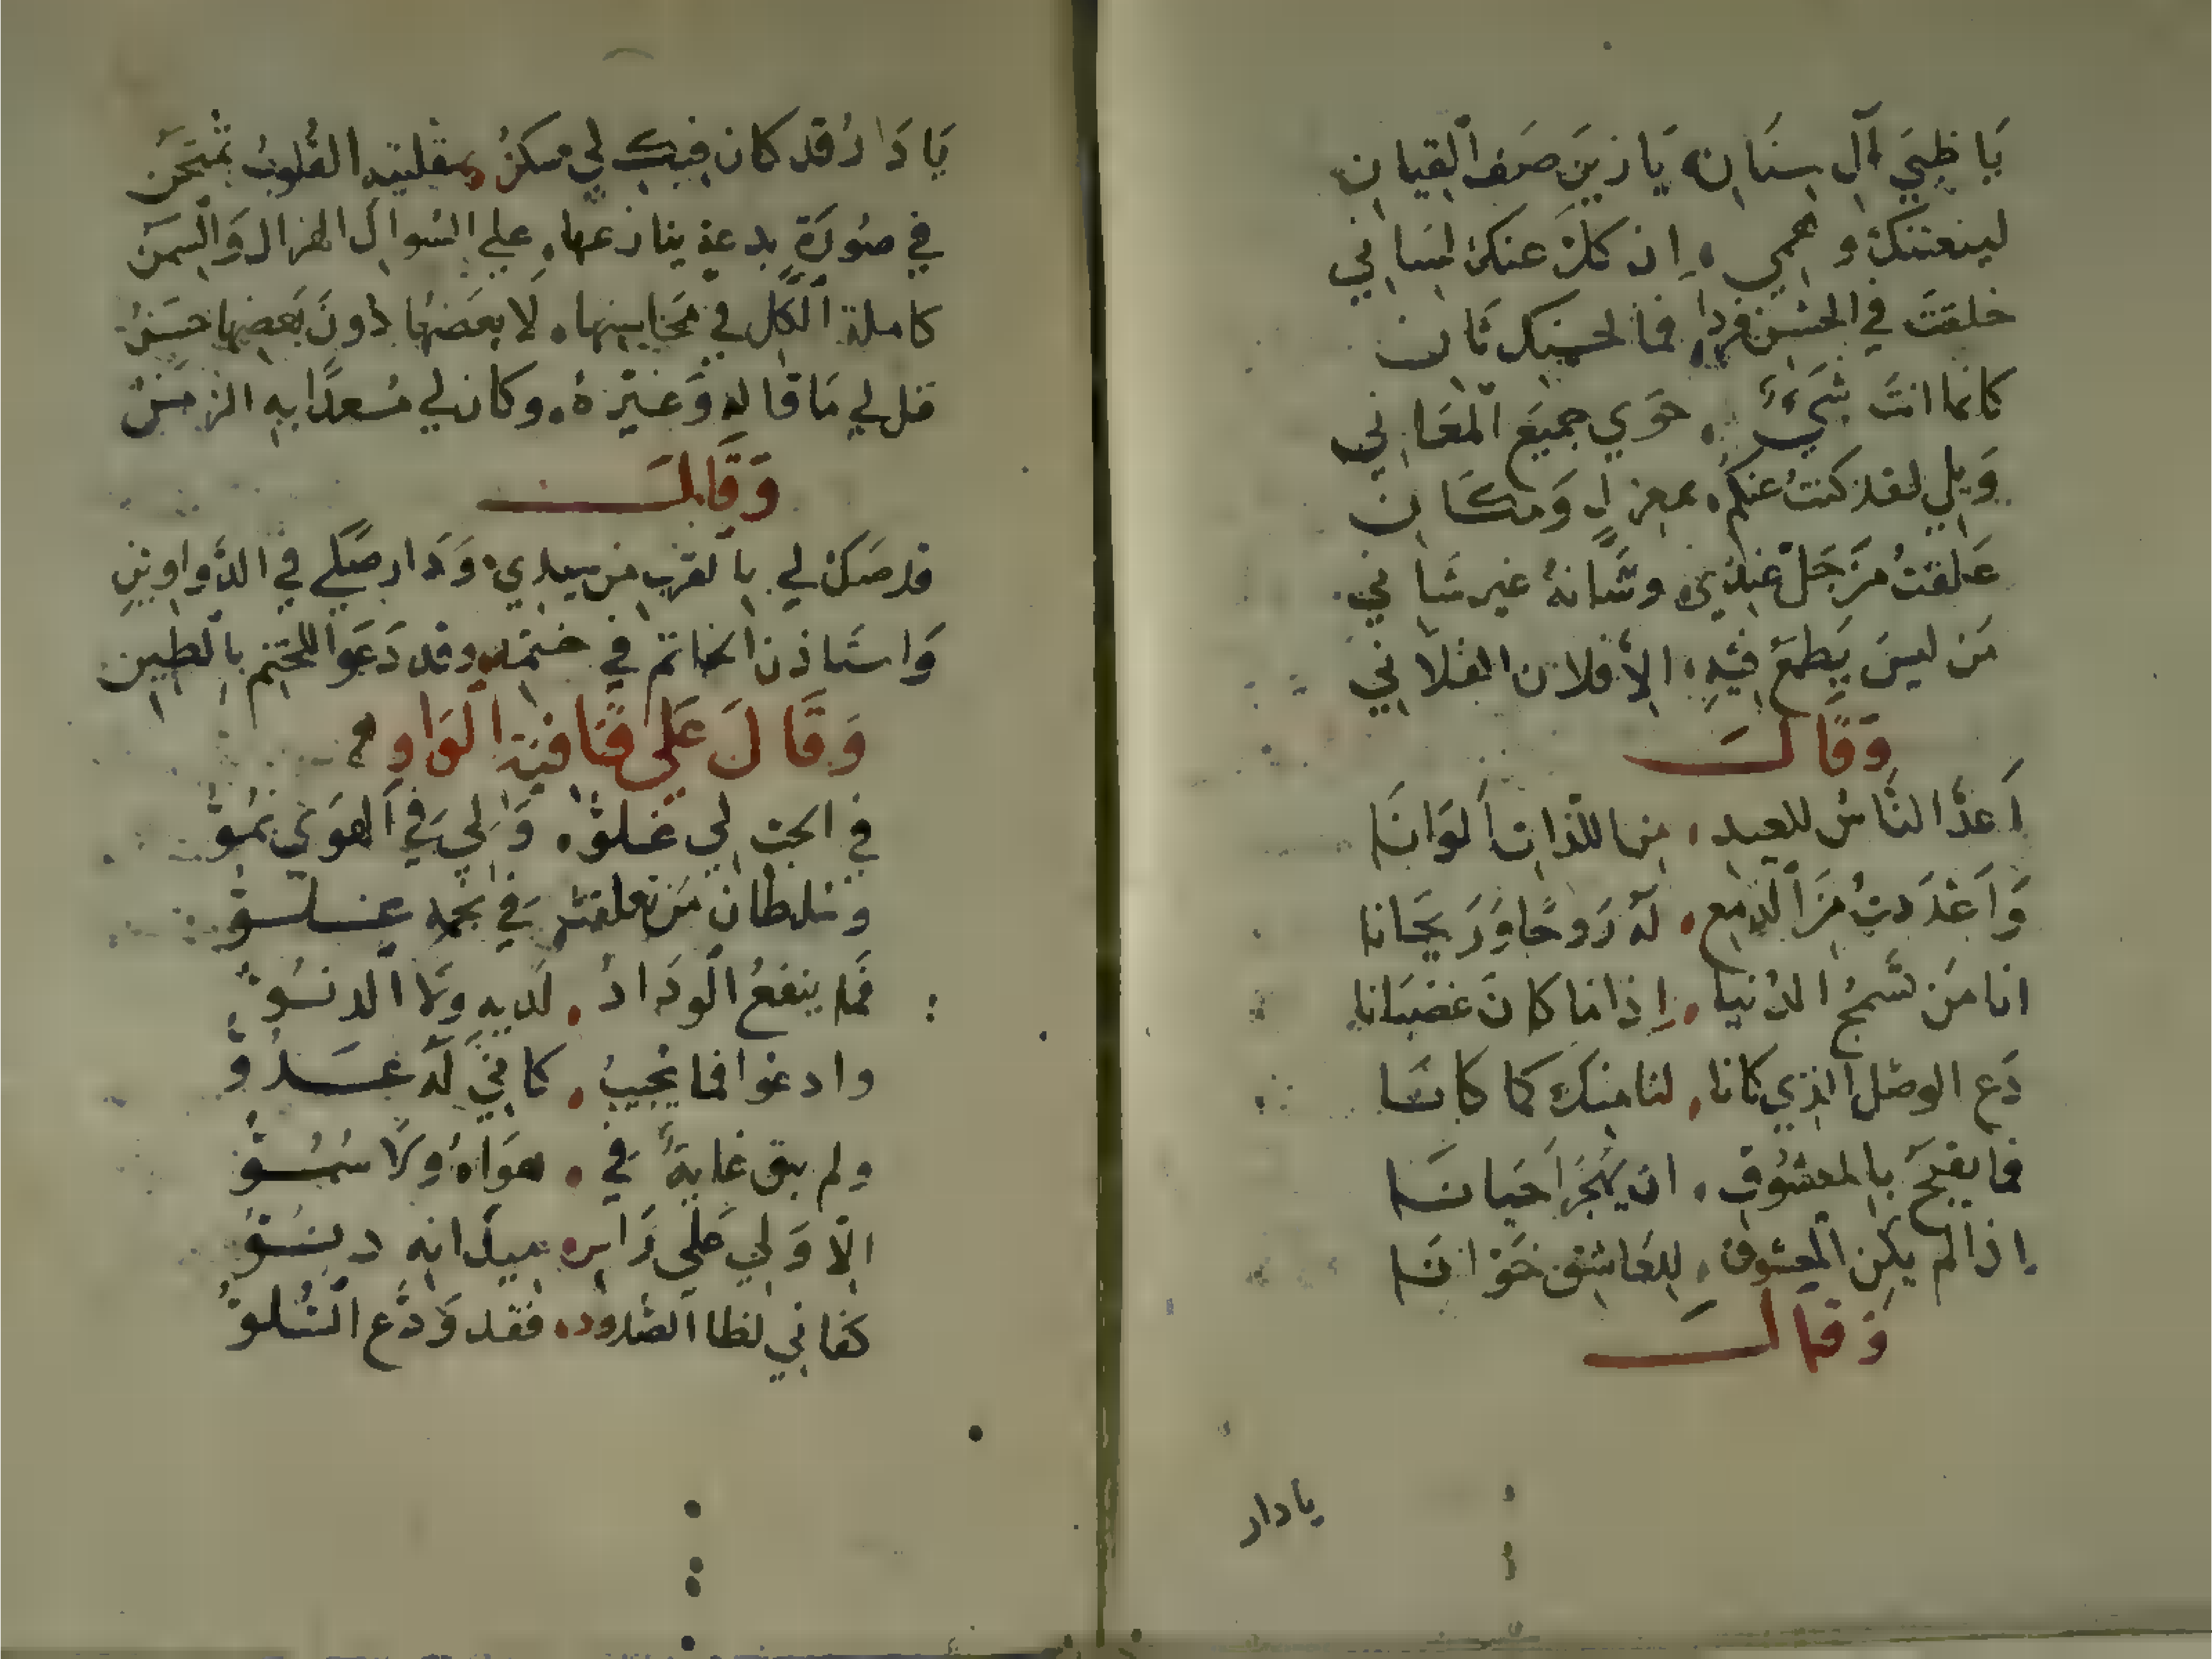 يَا ظبيَ آل سِنَانِ يَا زينَ صَف القِيانِ
لينعتنك وهمي إن كلَّ عنك لسَاني
خلقتَ في الحُسن فردا فما لحسنك ثانِ
كانما انتَ شيءٌ حَوَي جميعَ المعَاني
وَيلي لقد كنتُ عنكم بمعزلٍ وَمكَان
عَلقتُ مَن جَلَّ عندي وشانهُ غير شاني
مَن ليسَ يَطمعُ فيهِ الا فلان الفلاني
وَقَالَ
اَعدَّ النَّاسُ للعيد من اللذات اَلوَانَا
وَاَعدَدتُ مِنَ الدمع له رَوحًا وَرَيحَانا
انا مَن تسمجُ الدُنيا إِذا مَا كانَ غضبَانا
دَع الوصل الذي كانا لنا منك كما كانَا
فما يقبحُ بالمعشُوقِ ان يَهجُرَ اَحيانَا
إذا لم يكن المعشوق لِلعَاشِق خَوَّانَا
وَقَالَ
يادار
يَا دَارُ قد كان فيكِ لي سكنُ بمقلتيه القُلوبُ تمتَحَنُ
في صُورَةٍ بدعةٍ ينازعها علي السُوالِ الهزال وَالسِمَن
كاملة الكل في مَحَاسِنها لا بعضهَا دونَ بَعضِها حسَنُ
قل لي مَا قاله وَغيّرهُ وكان لي مُسعدًا به الزمَنُ
وَقَالَ
قد صَكَّ لي بالقرب من سيدي وَدَار صَكي في الدَّواوينِ
وَاستاذن الخاتم في ختمه وقد دَعَوا للختم بالطين
وَقَالَ عَلى قَافية الوَاو
في الحبّ لي غلوُّ وَلِي في الهوَي نمُوُّ
وسُلطان مَن تعلقتُه في نجمه عُلوُّ
فَما ينفعُ الودَادُ لَديهِ ولا الدنُوُّ
وادعُوا فما يُجيبُ كاني لَه عَدُوُّ
ولم يبق غايةٌ في هوَاهُ ولا سُمُوُّ
الّا وَلِي عَلي رَاسِ ميدانهِ دنُوُّ
كفاني لظا الصُدود فقد وَدَّع السُلوُّ